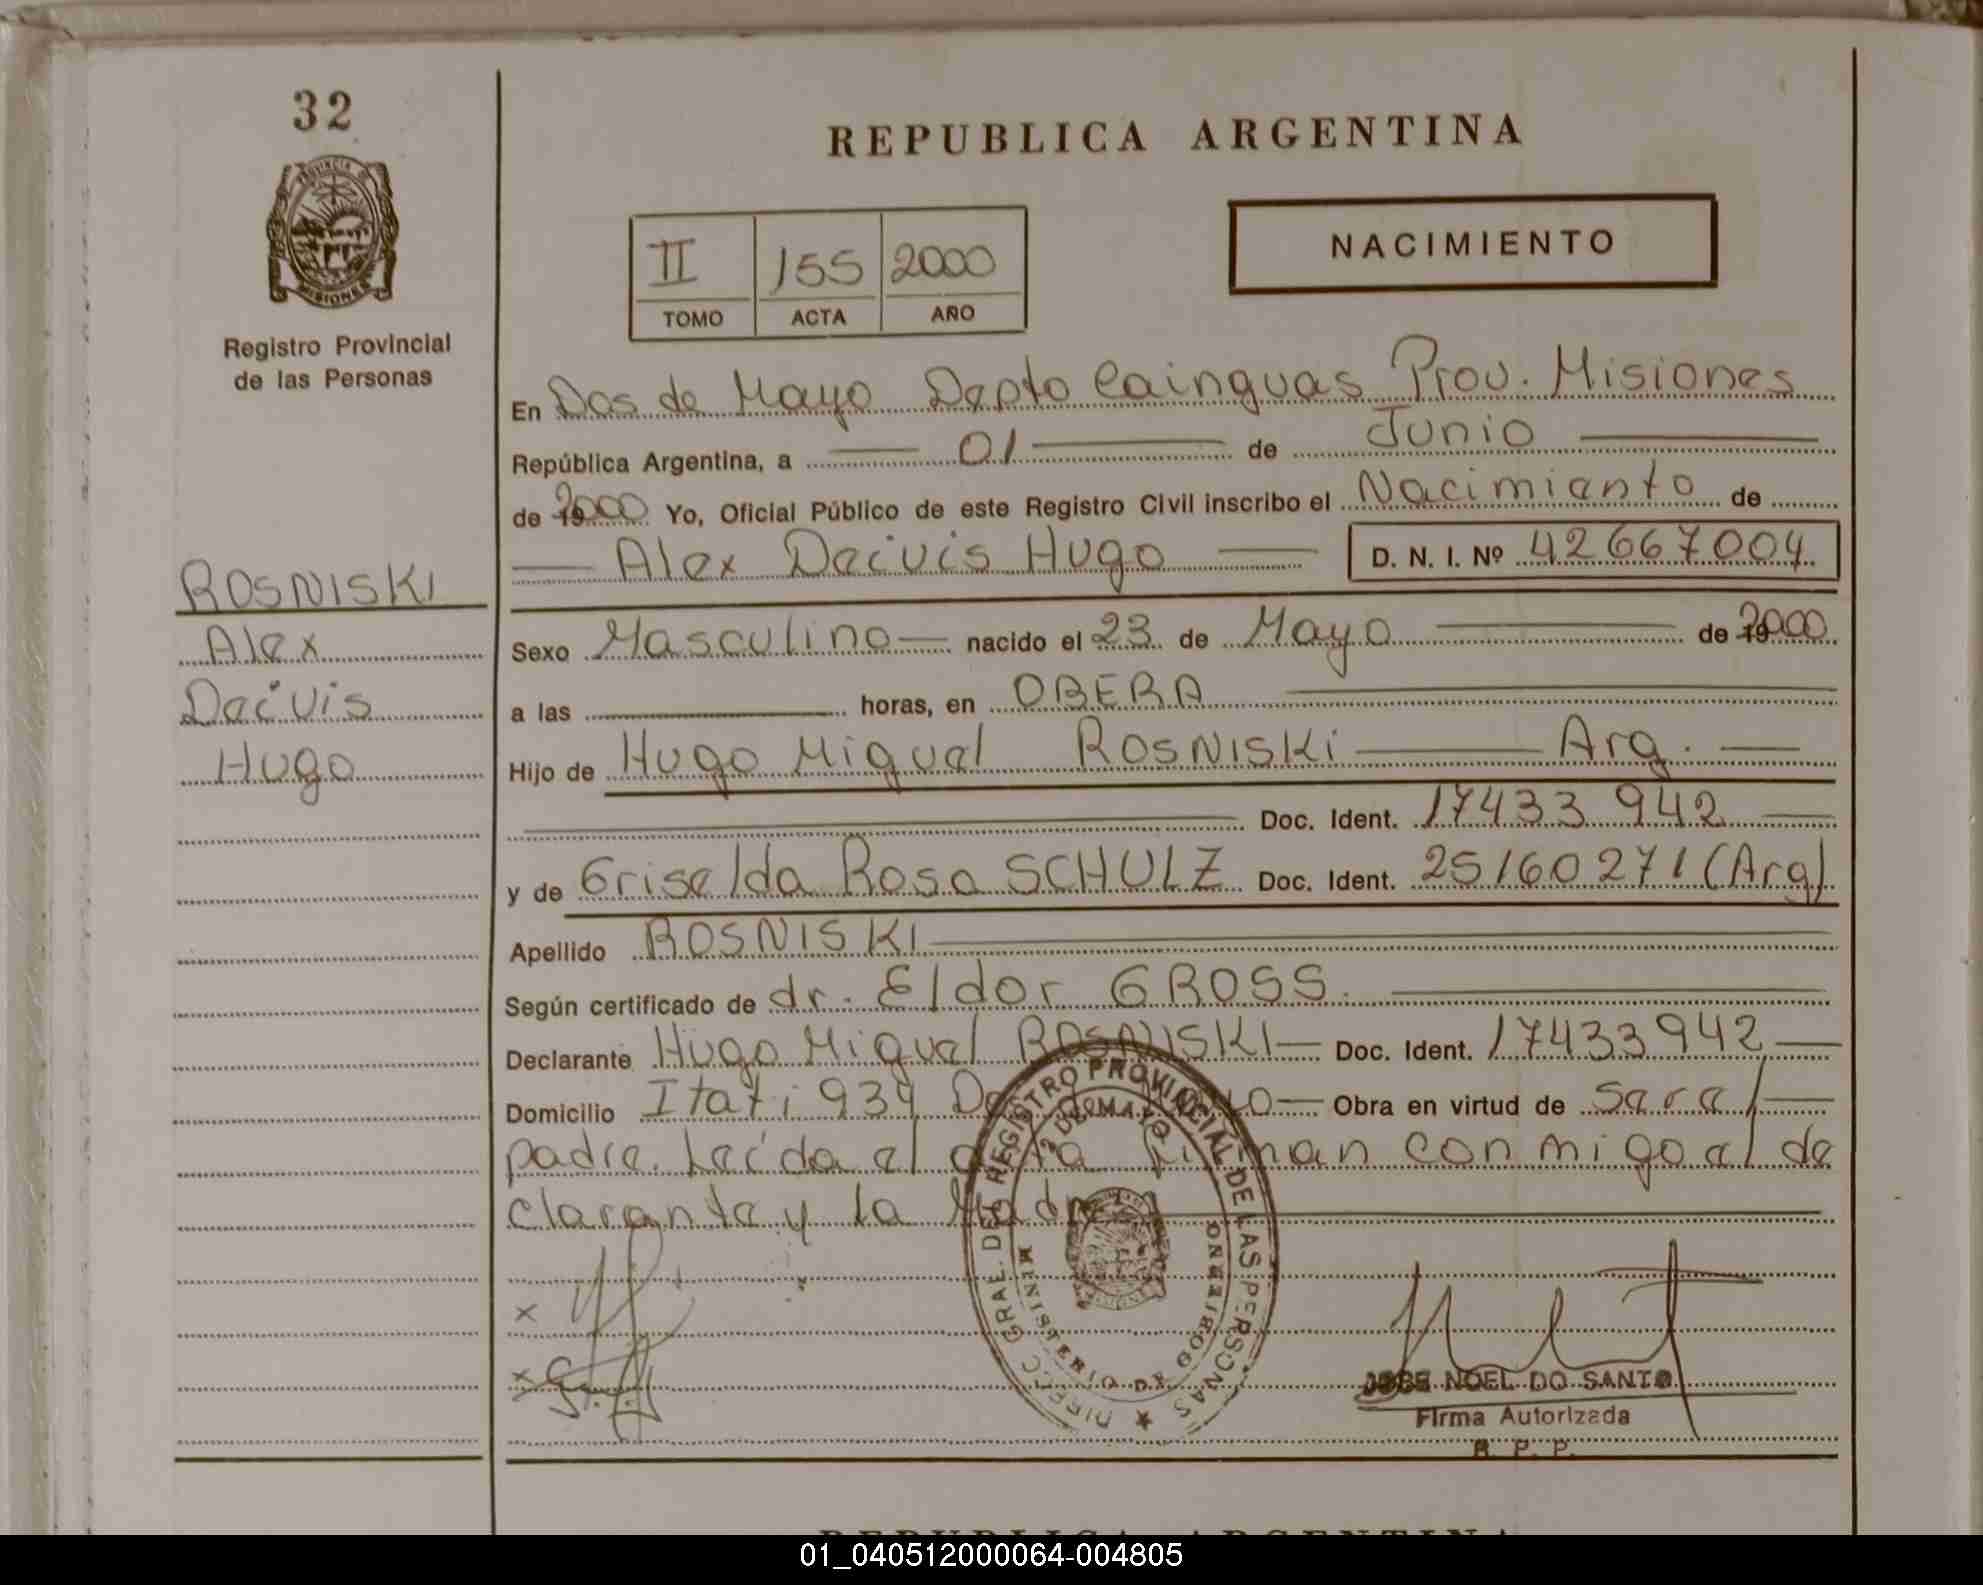 32
PROVINCIA DE
MISIONES
Registro Provincial
de las Personas
REPUBLICA ARGENTINA
II 155 2000
TOMO ACTA AÑO
NACIMIENTO
En Dos de Mayo Depto Cainguas Prov. Misiones
República Argentina, a — 01 — de Junio —
de 2000 Yo, Oficial Público de este Registro Civil inscribo el Nacimiento de
— Alex Deivis Hugo — D. N. I. Nº 42667004
ROSNISKI
Alex
Deivis
Hugo
Sexo Masculino — nacido el 23 de Mayo — de 2000
a las — horas, en OBERA —
Hijo de Hugo Miguel ROSNISKi — Arg. —
— Doc. Ident. 17433942 —
y de Griselda Rosa SCHULZ Doc. Ident. 25160271 (Arg)
Apellido ROSNISKI —
Según certificado de dr. Eldor GROSS. —
Declarante Hugo Miguel ROSNISKI — Doc. Ident. 17433942 —
Domicilio Itati 934 Mayo — Obra en virtud de ser el —
padre. Leída el acta firman conmigo el de
clarante y la Madre —
DIRECC. GRAL. DEL REGISTRO PROVINCIAL DE LAS PERSONAS
2 DE MAYO
MINISTERIO DE GOBIERNO
x
x
JOSE NOEL DO SANTO
Firma Autorizada
R. P. P.
REPUBLICA ARGENTINA
01_040512000064-004805